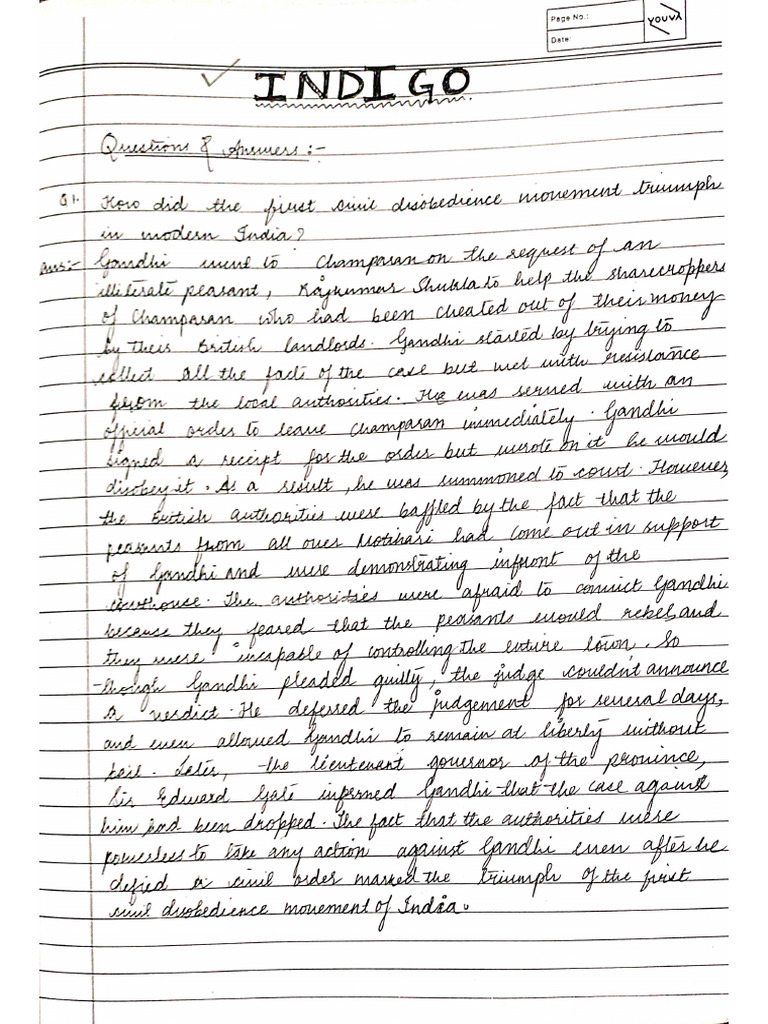 Page No.:
Date:
YOUVA
INDIGO
Questions & Answers :-
Q1. How did the first civil disobedience movement triumph
in modern India?
Ans:- Gandhi went to Champaran on the request of an
illiterate peasant, Rajkumar Shukla to help the sharecroppers
of Champaran who had been cheated out of their money
by their British landlords. Gandhi started by trying to
collect all the facts of the case but met with resistance
from the local authorities. He was served with an
official order to leave Champaran immediately. Gandhi
signed a receipt for the order but wrote on it he would
disobey it. As a result, he was summoned to court. However,
the British authorities were baffled by the fact that the
peasants from all over Motihari had come out in support
of Gandhi and were demonstrating infront of the
courthouse. The authorities were afraid to convict Gandhi
because they feared that the peasants would rebel, and
they were incapable of controlling the entire town. So
though Gandhi pleaded guilty, the judge couldn't announce
a verdict. He deferred the judgement for several days,
and even allowed Gandhi to remain at liberty without
bail. Later, the lieutenant governor of the province,
Sir Edward Gate informed Gandhi that the case against
him had been dropped. The fact that the authorities were
powerless to take any action against Gandhi even after he
defied a civil order marked the triumph of the first
civil disobedience movement of India.